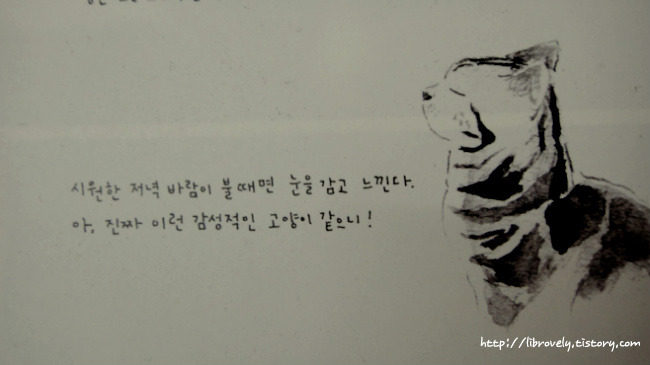 시원한 저녁 바람이 불때면 눈을 감고 느낀다.
아, 진짜 이런 감성적인 고양이 같으니!
http://librovely.tistory.com